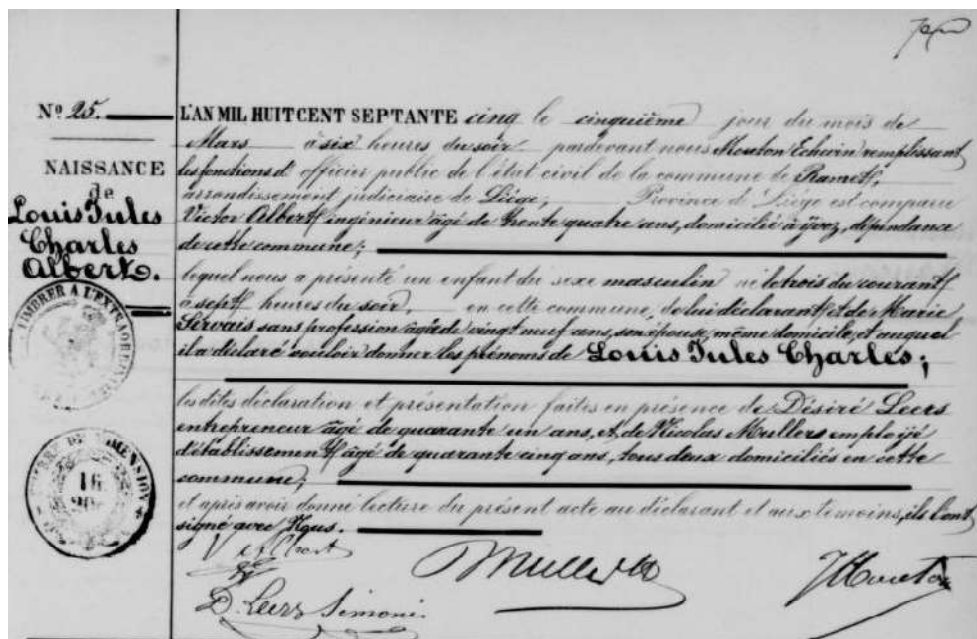 Nº 25.
NAISSANCE
de
Louis Jules
Charles
Albert.
TIMBRER A L'EXTRAORDINAIRE
TIMBRE DE DIMENSION
16
L'AN MIL HUIT CENT SEPTANTE cinq le cinquième jour du mois de
Mars à six heures du soir pardevant nous Mouton Echevin remplissant
les fonctions d'officier public de l'état civil de la commune de Ramet,
arrondissement judiciaire de Liége, Province de Liége est comparu
Victor Albert ingénieur âgé de trente quatre ans, domicilié à yvoz, dépendance
de cette commune;
lequel nous a présenté un enfant du sexe masculin né le trois du courant
à sept heures du soir, en cette commune, de lui déclarant et de Marie
Servais sans profession âgée de vingt neuf ans, son épouse, même domicile, et auquel
il a déclaré vouloir donner les prénoms de Louis Jules Charles;
les dites déclaration et présentation faites en présence de Désiré Leers
entrepreneur âgé de quarante un ans, et de Nicolas Mullers employé
d'établissement âgé de quarante cinq ans, tous deux domiciliés en cette
commune;
et après avoir donné lecture du présent acte au déclarant et aux témoins, ils l'ont
signé avec Nous.
V Albert
Mullers
D. Leers Simoni